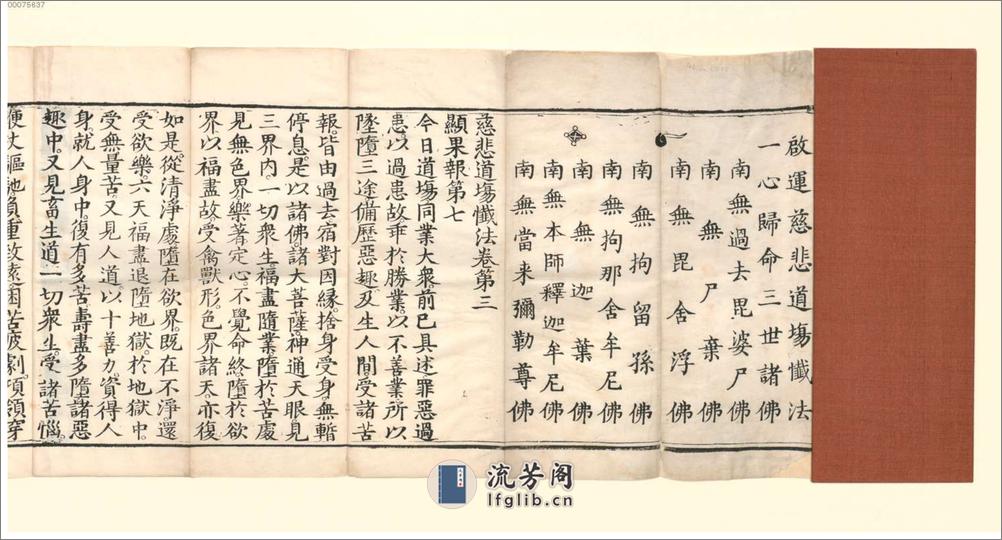 00075637
啟運慈悲道場懺法
一心歸命三世諸佛
南無過去毘婆尸佛
南無尸棄佛
南無毘舍浮佛
南無拘留孫佛
南無拘那舍牟尼佛
南無迦葉佛
南無本師釋迦牟尼佛
南無當来彌勒尊佛
慈悲道塲懺法卷第三
顯果報第七
今日道塲同業大衆前已具述罪惡過
患以過患故乖於勝業以不善業所以
墜墮三途備歷惡趣及生人間受諸苦
報皆由過去宿對因緣捨身受身無暫
停息是以諸佛諸大菩薩神通天眼見
三界内一切衆生福盡隨業墮於苦處
見無色界樂著定心不覺命終墮於欲
界以福盡故受禽獸形色界諸天亦復
如是從清淨處墮在欲界既在不淨還
受欲樂六天福盡退墮地獄於地獄中
受無量苦又見人道以十善力資得人
身就人身中復有多苦壽盡多墮諸惡
趣中又見畜生道一切衆生受諸苦惱
鞭杖驅馳負重致遠困苦疲劇項領穿
流芳阁
lfglib.cn